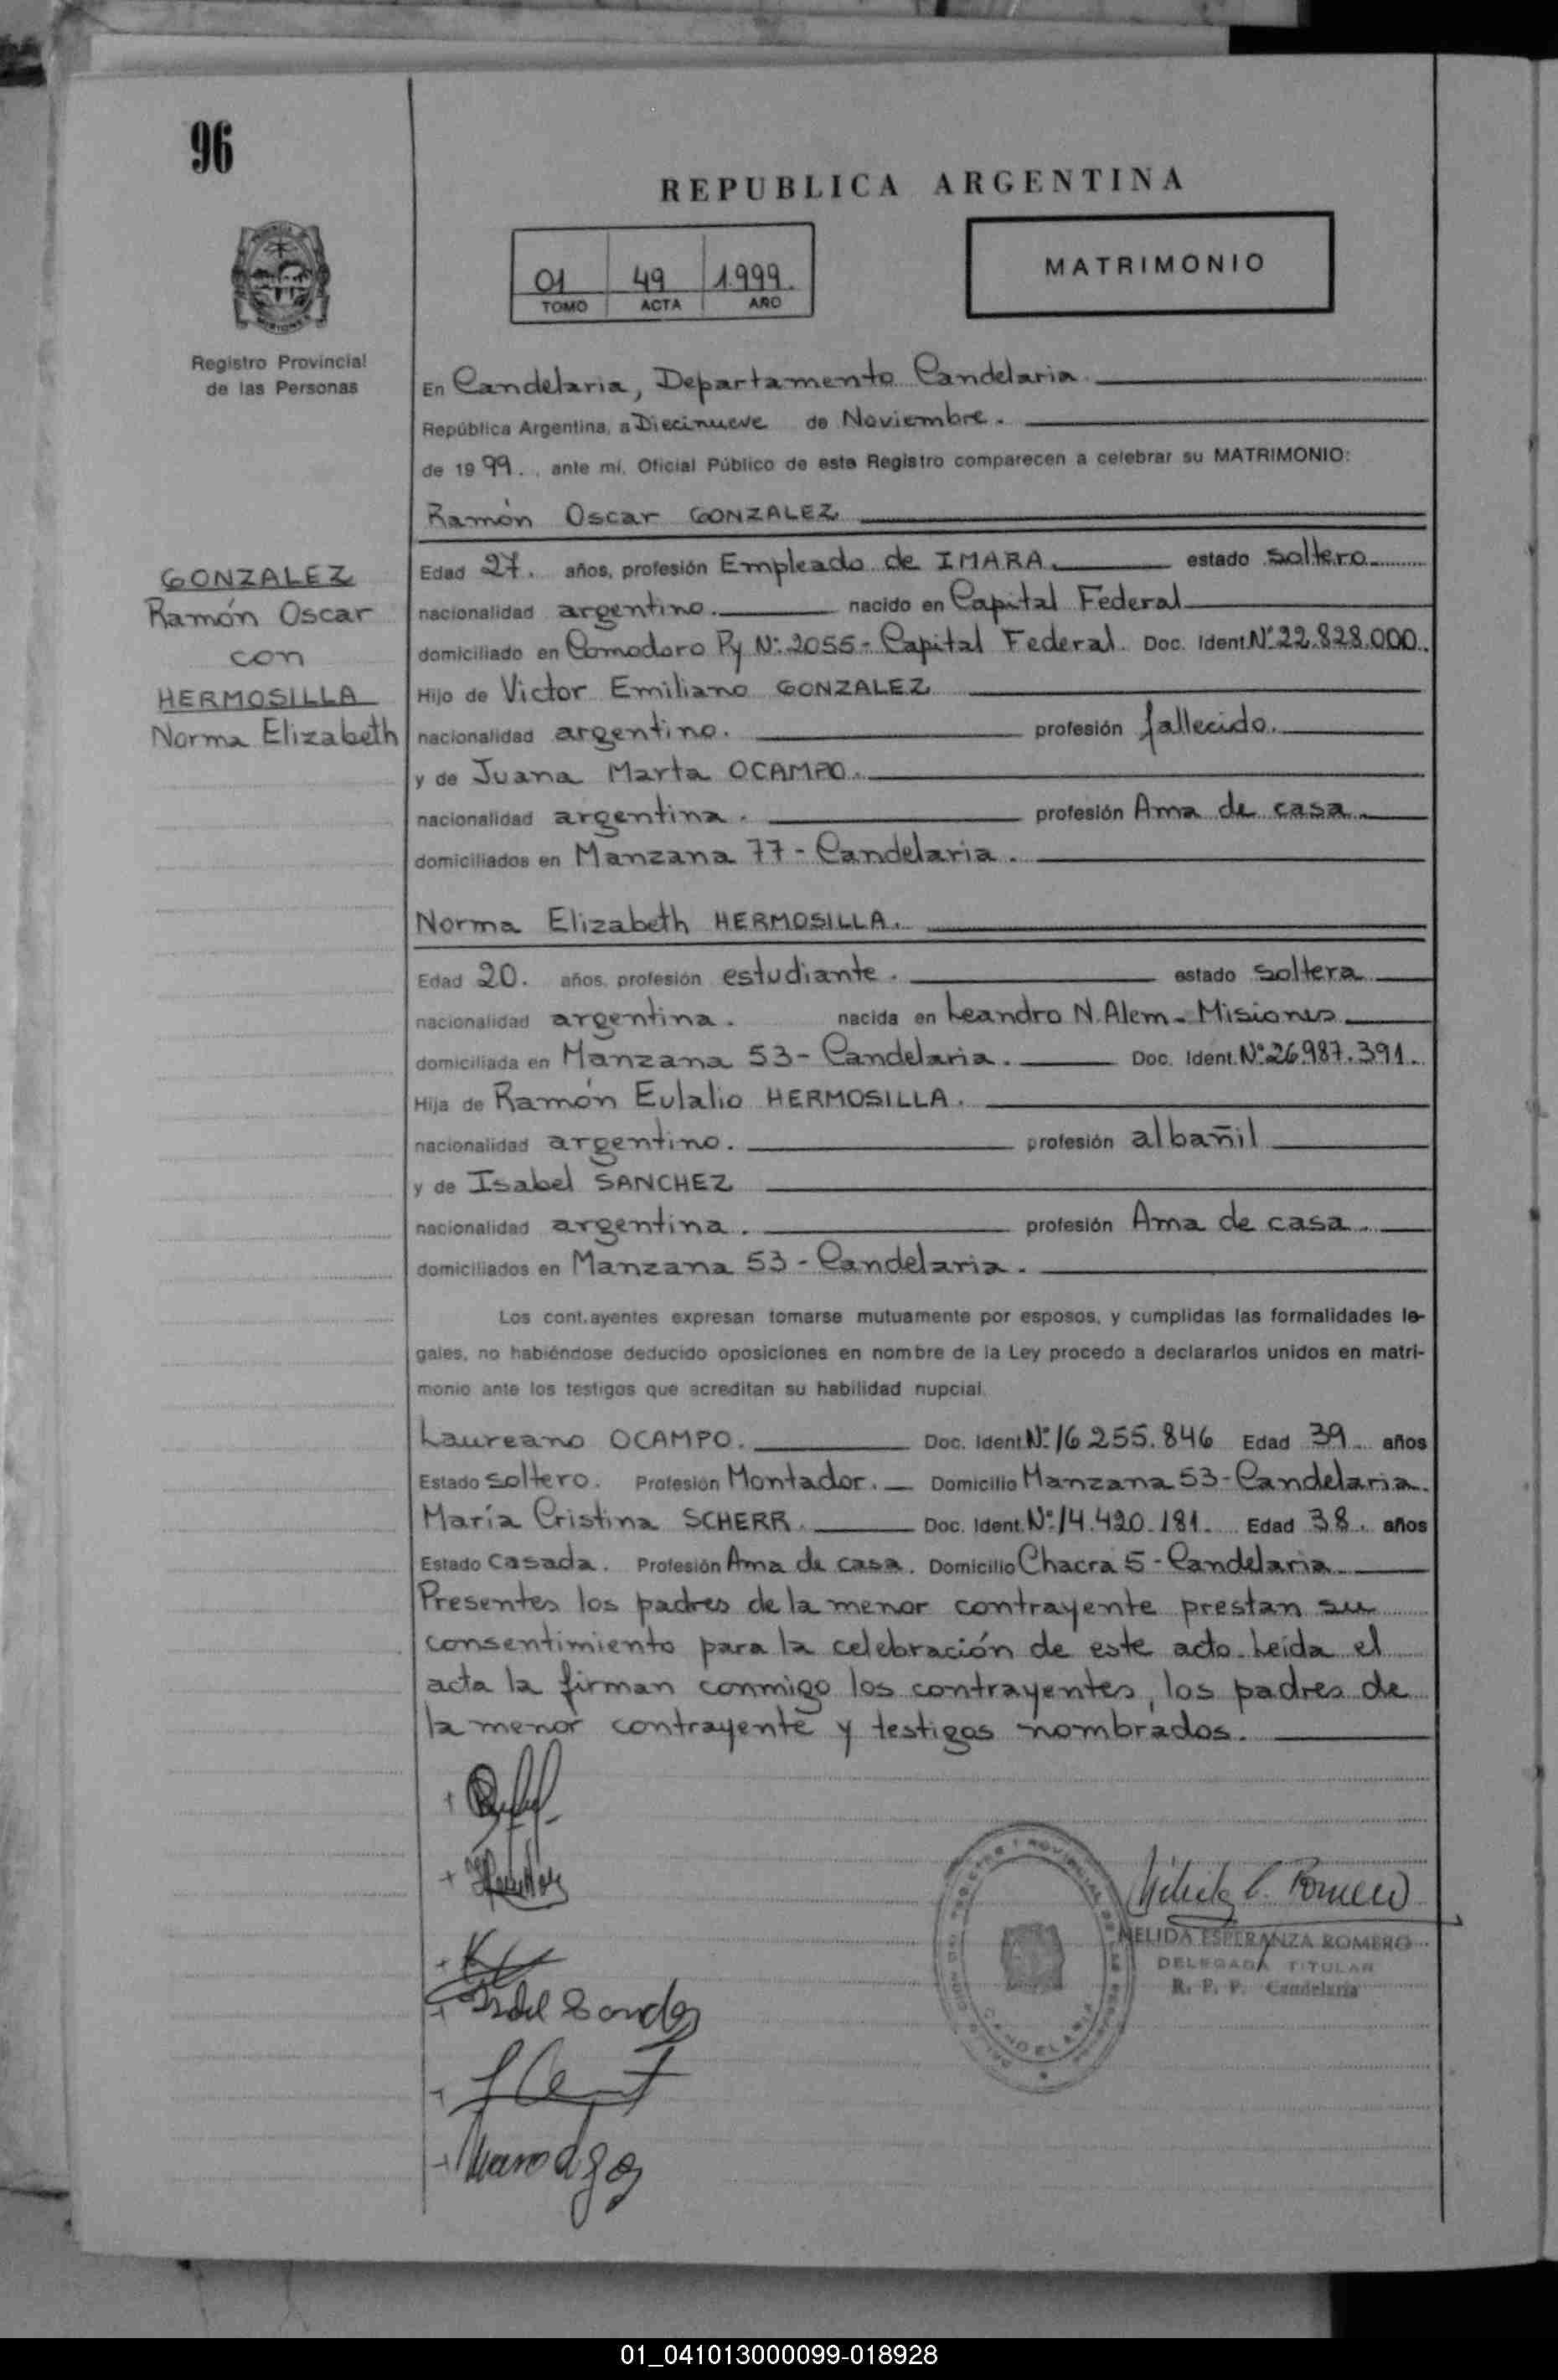 96
REPUBLICA ARGENTINA
01 49 1.999.
TOMO ACTA AÑO
MATRIMONIO
Registro Provincial
de las Personas
GONZALEZ
Ramón Oscar
con
HERMOSILLA
Norma Elizabeth
En Candelaria, Departamento Candelaria
República Argentina, a Diecinueve de Noviembre.
de 19 99. , ante mí, Oficial Público de este Registro comparecen a celebrar su MATRIMONIO:
Ramón Oscar GONZALEZ
Edad 27. años, profesión Empleado de IMARA. estado soltero
nacionalidad argentino. nacido en Capital Federal
domiciliado en Comodoro Py Nº: 2055- Capital Federal. Doc. Ident. Nº 22.828.000.
Hijo de Victor Emiliano GONZALEZ
nacionalidad argentino. profesión fallecido.
y de Juana Marta OCAMPO.
nacionalidad argentina. profesión Ama de casa.
domiciliados en Manzana 77 - Candelaria.
Norma Elizabeth HERMOSILLA.
Edad 20. años, profesión estudiante. estado soltera
nacionalidad argentina. nacida en Leandro N. Alem - Misiones
domiciliada en Manzana 53 - Candelaria. Doc. Ident. Nº 26.987.391.
Hija de Ramón Eulalio HERMOSILLA.
nacionalidad argentino. profesión albañil
y de Isabel SANCHEZ
nacionalidad argentina. profesión Ama de casa.
domiciliados en Manzana 53 - Candelaria.
Los cont.ayentes expresan tomarse mutuamente por esposos, y cumplidas las formalidades le-
gales, no habiéndose deducido oposiciones en nombre de la Ley procedo a declararlos unidos en matri-
monio ante los testigos que acreditan su habilidad nupcial.
Laureano OCAMPO. Doc. Ident. Nº 16.255.846 Edad 39 años
Estado soltero. Profesión Montador. Domicilio Manzana 53 - Candelaria.
María Cristina SCHERR. Doc. Ident. Nº 14.420.181. Edad 38. años
Estado Casada. Profesión Ama de casa. Domicilio Chacra 5 - Candelaria.
Presentes los padres de la menor contrayente prestan su
consentimiento para la celebración de este acto. Leída el
acta la firman conmigo los contrayentes, los padres de
la menor contrayente y testigos nombrados.
NELIDA ESPERANZA ROMERO
DELEGADA TITULAR
R. P. P. Candelaria
CANDELARIA
01_041013000099-018928